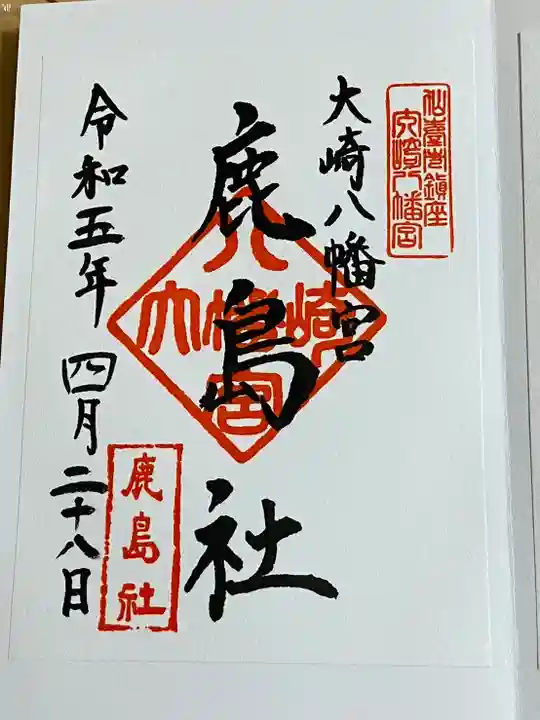 仙臺市鎮座
大崎八幡宮
大崎八幡宮
鹿島社
大崎八幡宮
鹿島社
令和五年四月二十八日